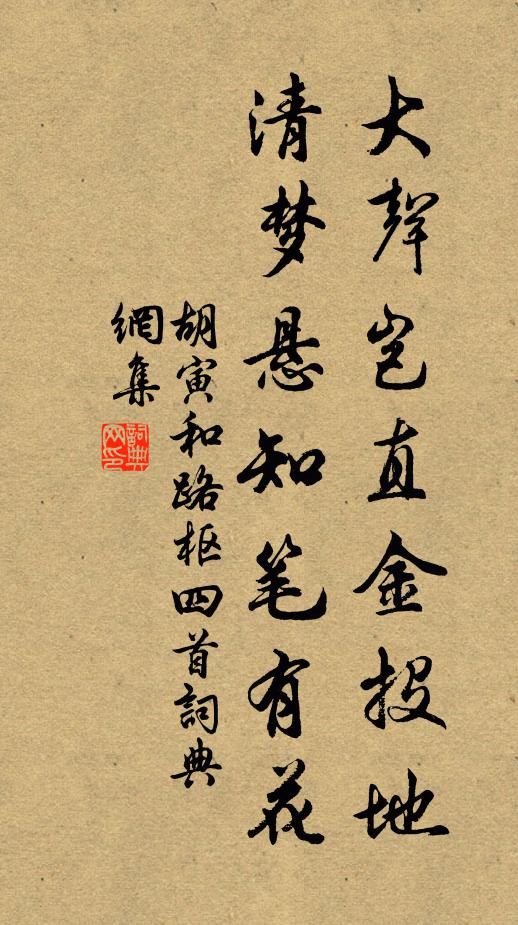 大聲岂直金投地
清梦悬知笔有花
胡寅和路枢四首詞典
網集
詞典网印